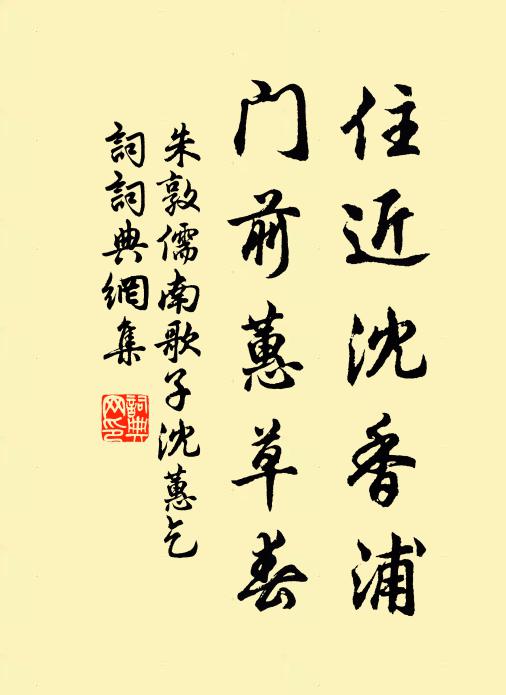 住近沈香浦
门前蕙草春
朱敦儒南歌子沈蕙乞
詞詞典網集
詞典網印